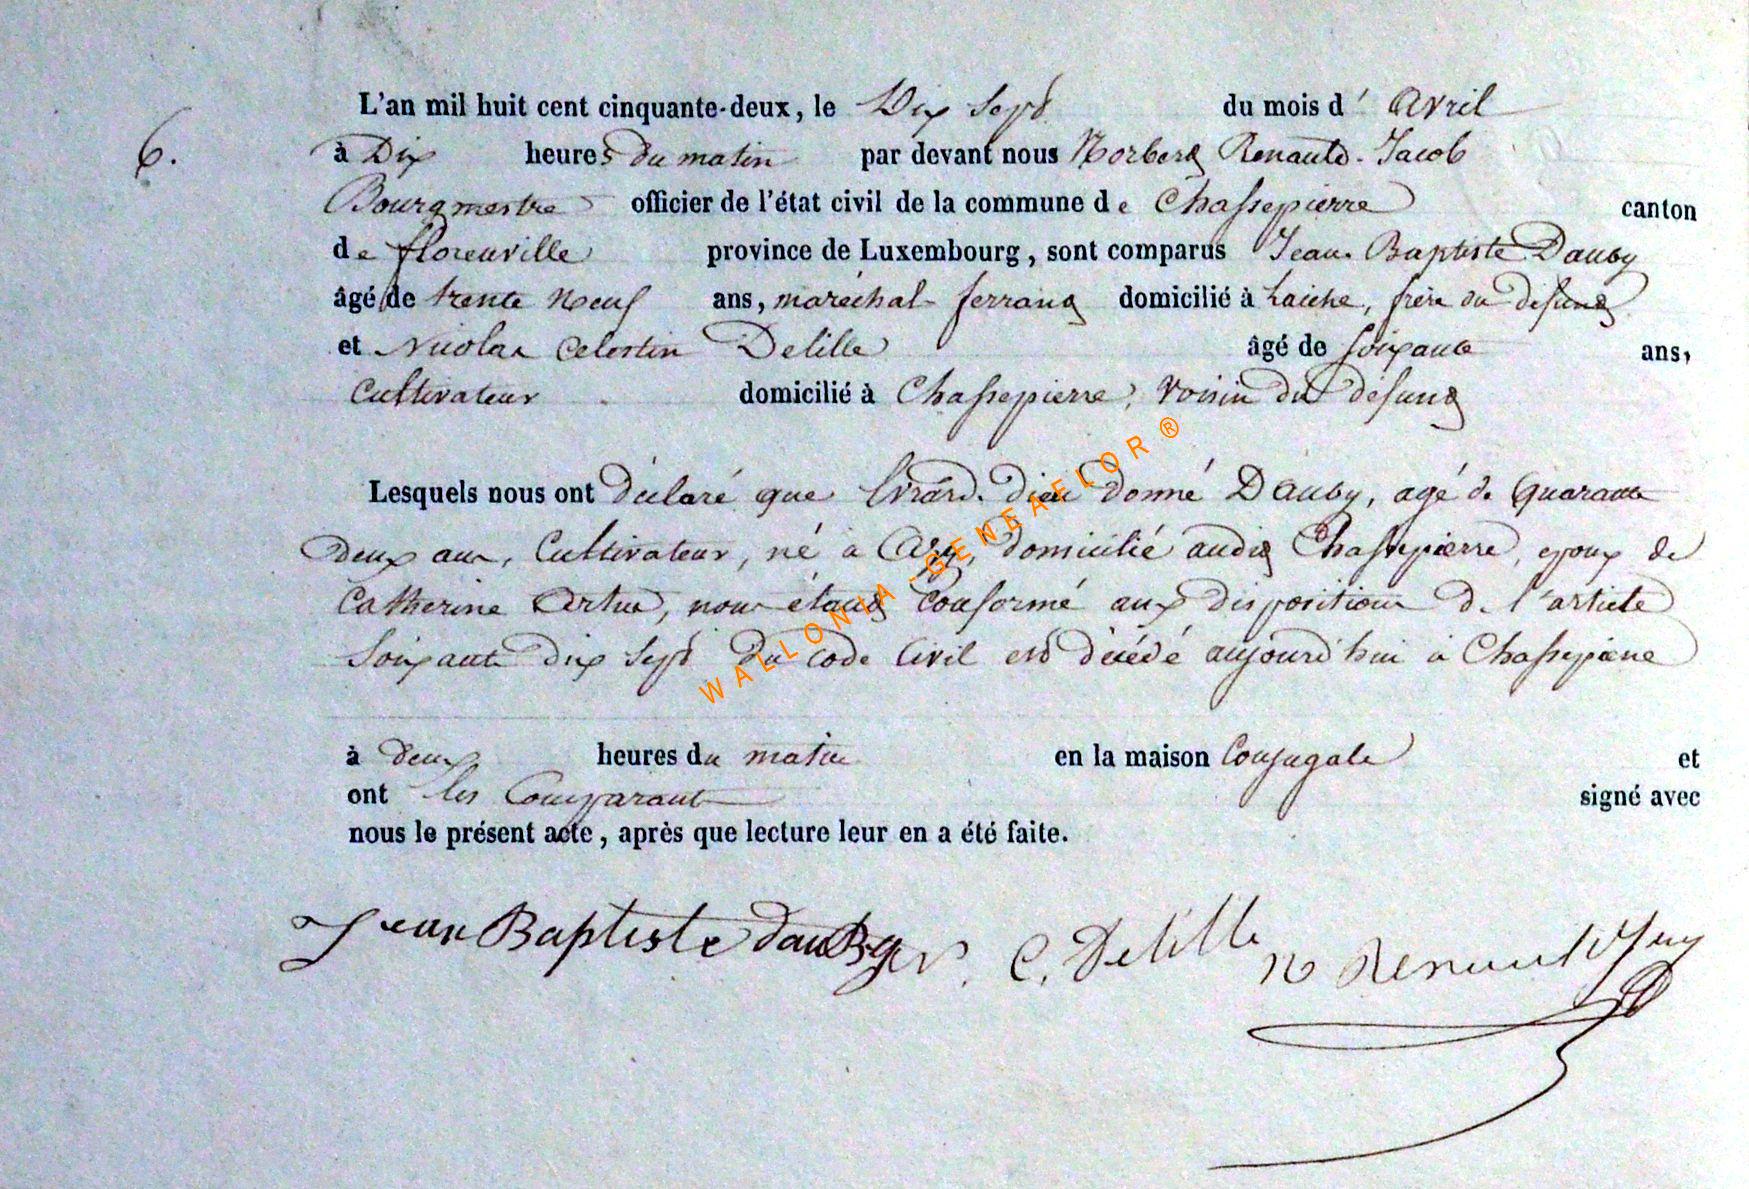 L'an mil huit cent cinquante-deux, le Dix Sept du mois d' Avril
6. à Dix heures du matin par devant nous Norbert Renauld-Jacob
Bourgmestre officier de l'état civil de la commune de Chassepierre canton
de florenville province de Luxembourg, sont comparus Jean Baptiste Dauby
âgé de trente neuf ans, maréchal ferrant domicilié à Laiche, frère du défunt
et Nicolas Celestin Delille âgé de soixante ans,
Cultivateur domicilié à Chassepierre, voisin du défunt
Lesquels nous ont déclaré que Evrard dieu donné Dauby, agé de quarante
deux ans, Cultivateur, né à domicilié audit Chassepierre, epoux de
Catherine Artus, nous étant conformé aux dispositions de l'article
Soixante dix sept du code Civil est décédé aujourd'hui à Chassepierre
à deux heures du matin en la maison Conjugale et
ont les Comparants signé avec
nous le présent acte, après que lecture leur en a été faite.
Jean Baptiste dauBy C. Delille N Renauld
WALLONIA - GENEAELOR ®